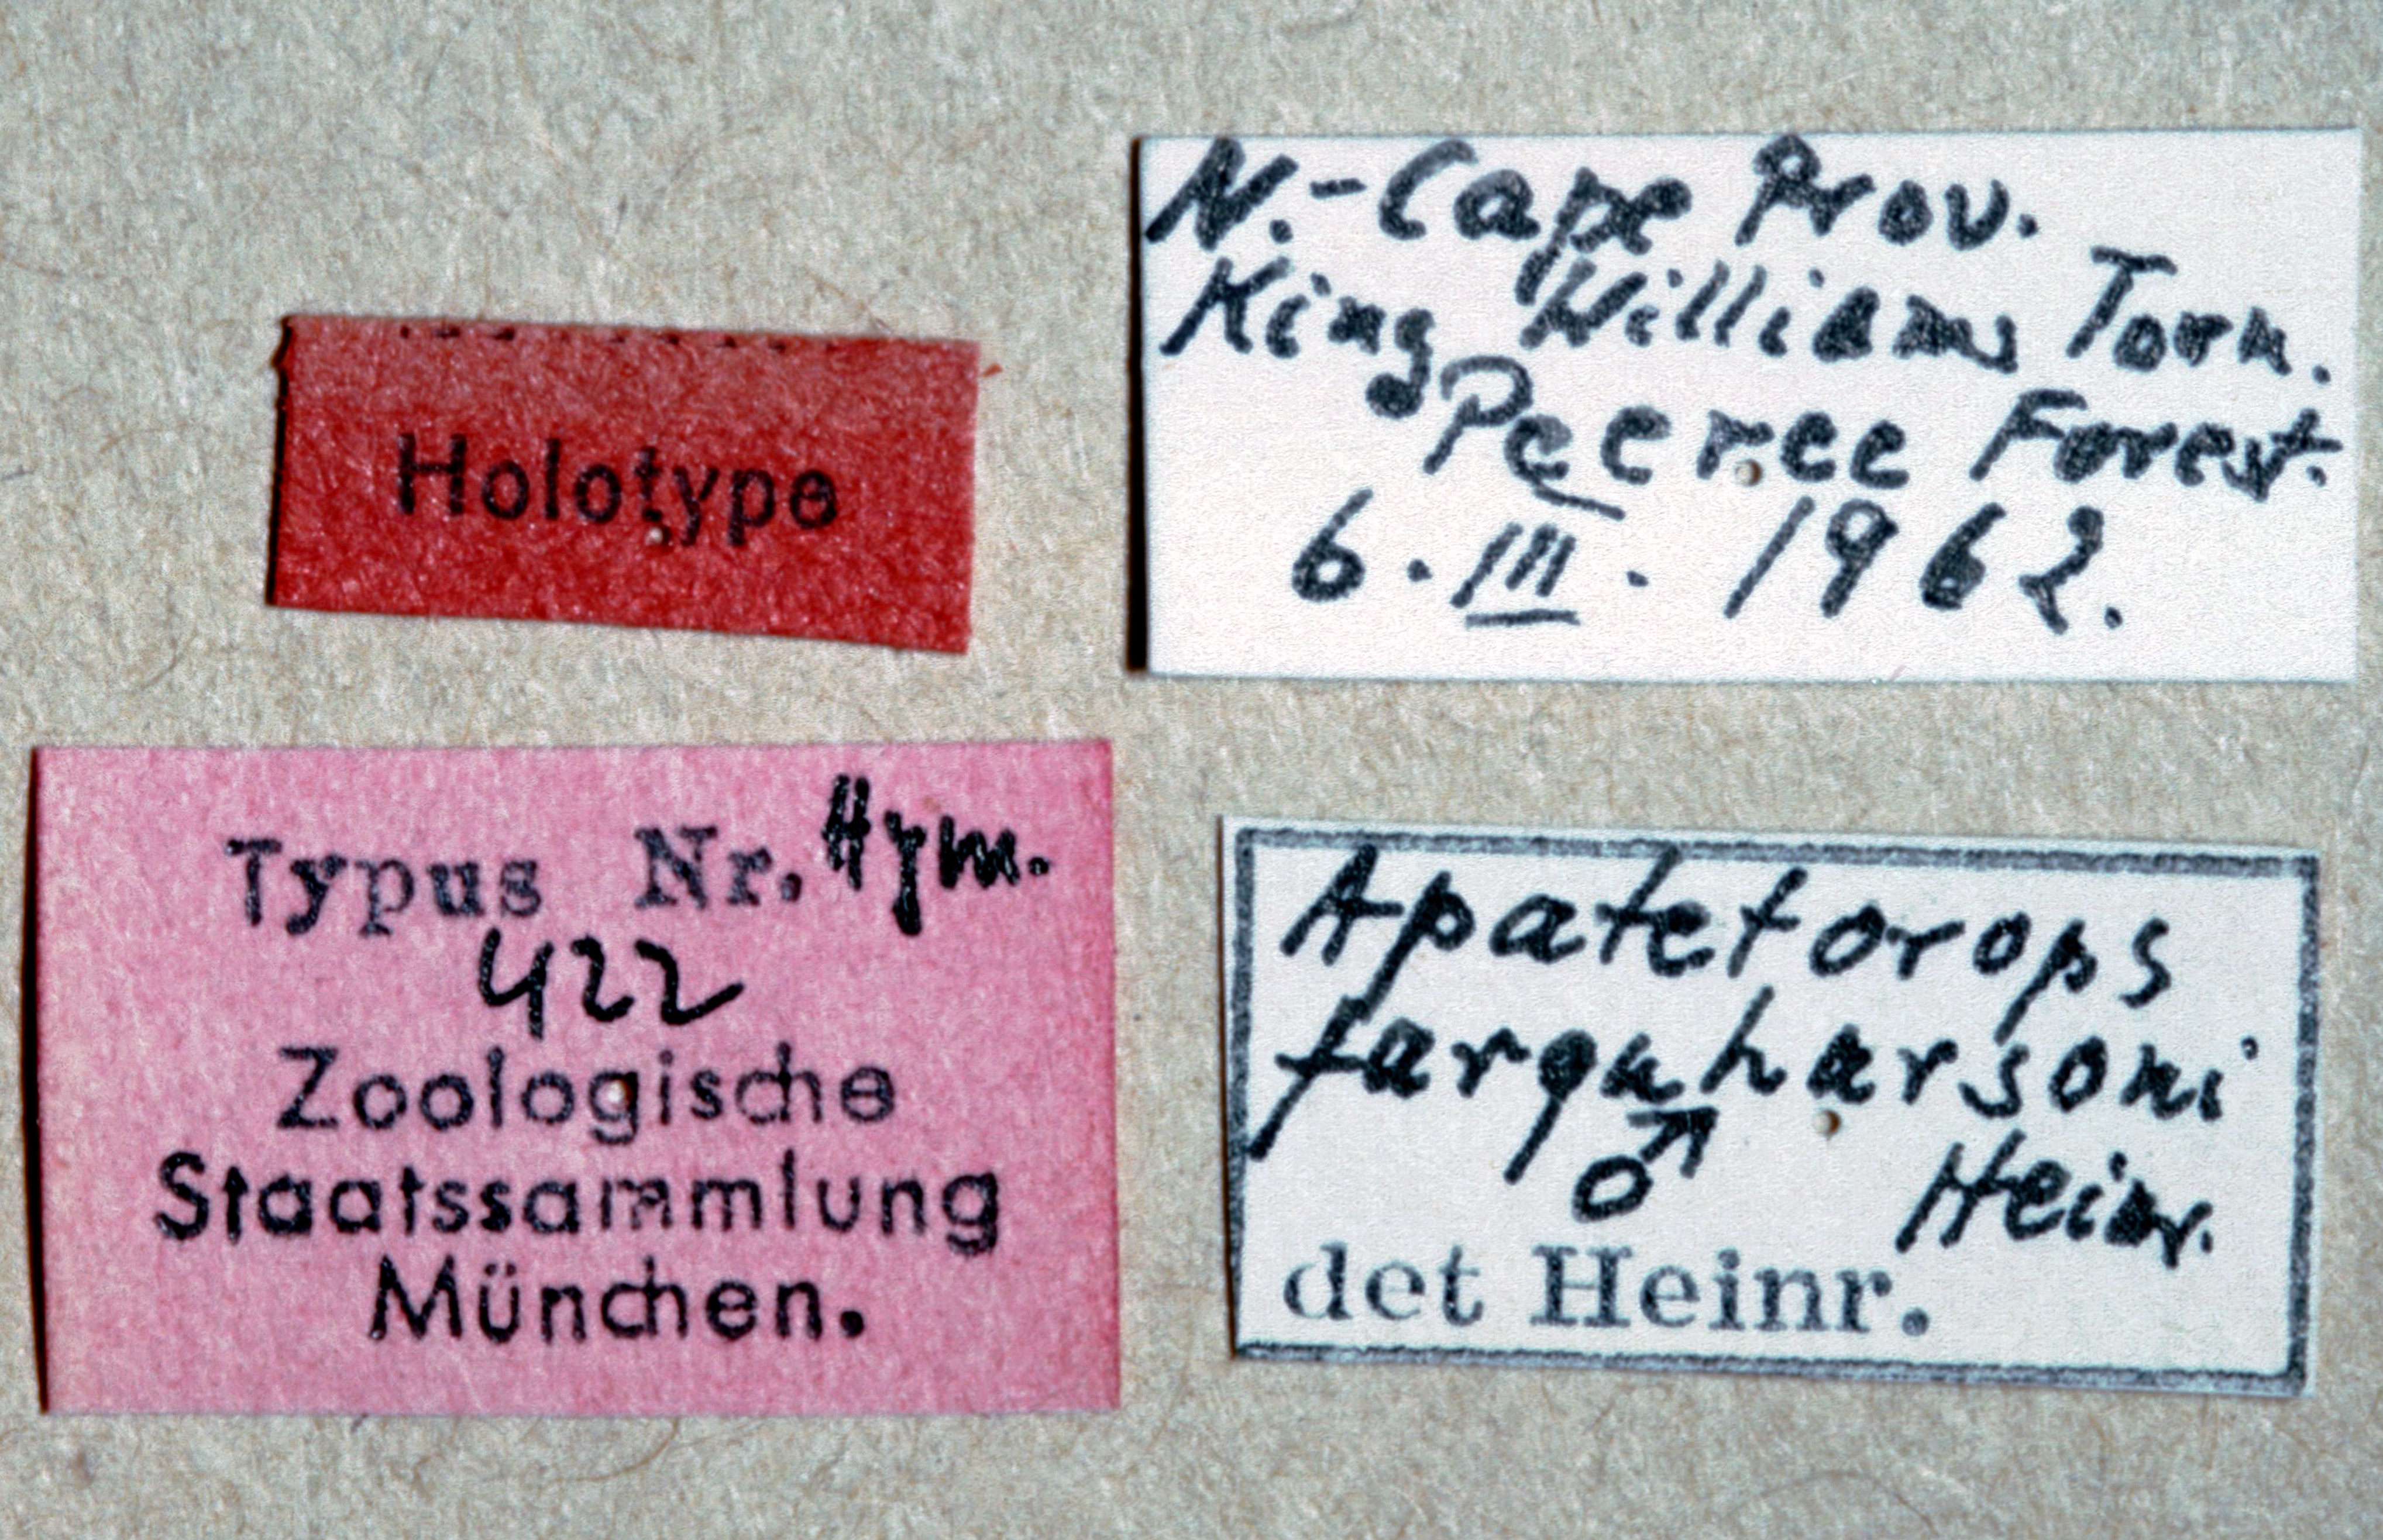 Holotype
N.-Cape Prov.
King Williams Town.
Peeree Forest.
6.III.1962.
Typus Nr. Hym.
422
Zoologische
Staatssammlung
München.
Apatetorops
farquharsoni
♂ Heinr.
det Heinr.